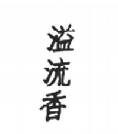 溢流香